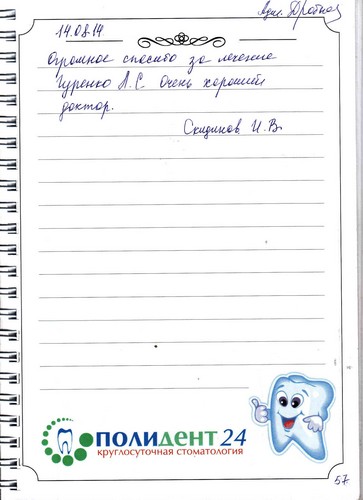 14.08.14
Огромное спасибо за лечение
Гуренко Л.С. Очень хороший
доктор.
Скиданов И.В.
ПОЛИДЕНТ 24
круглосуточная стоматология
57